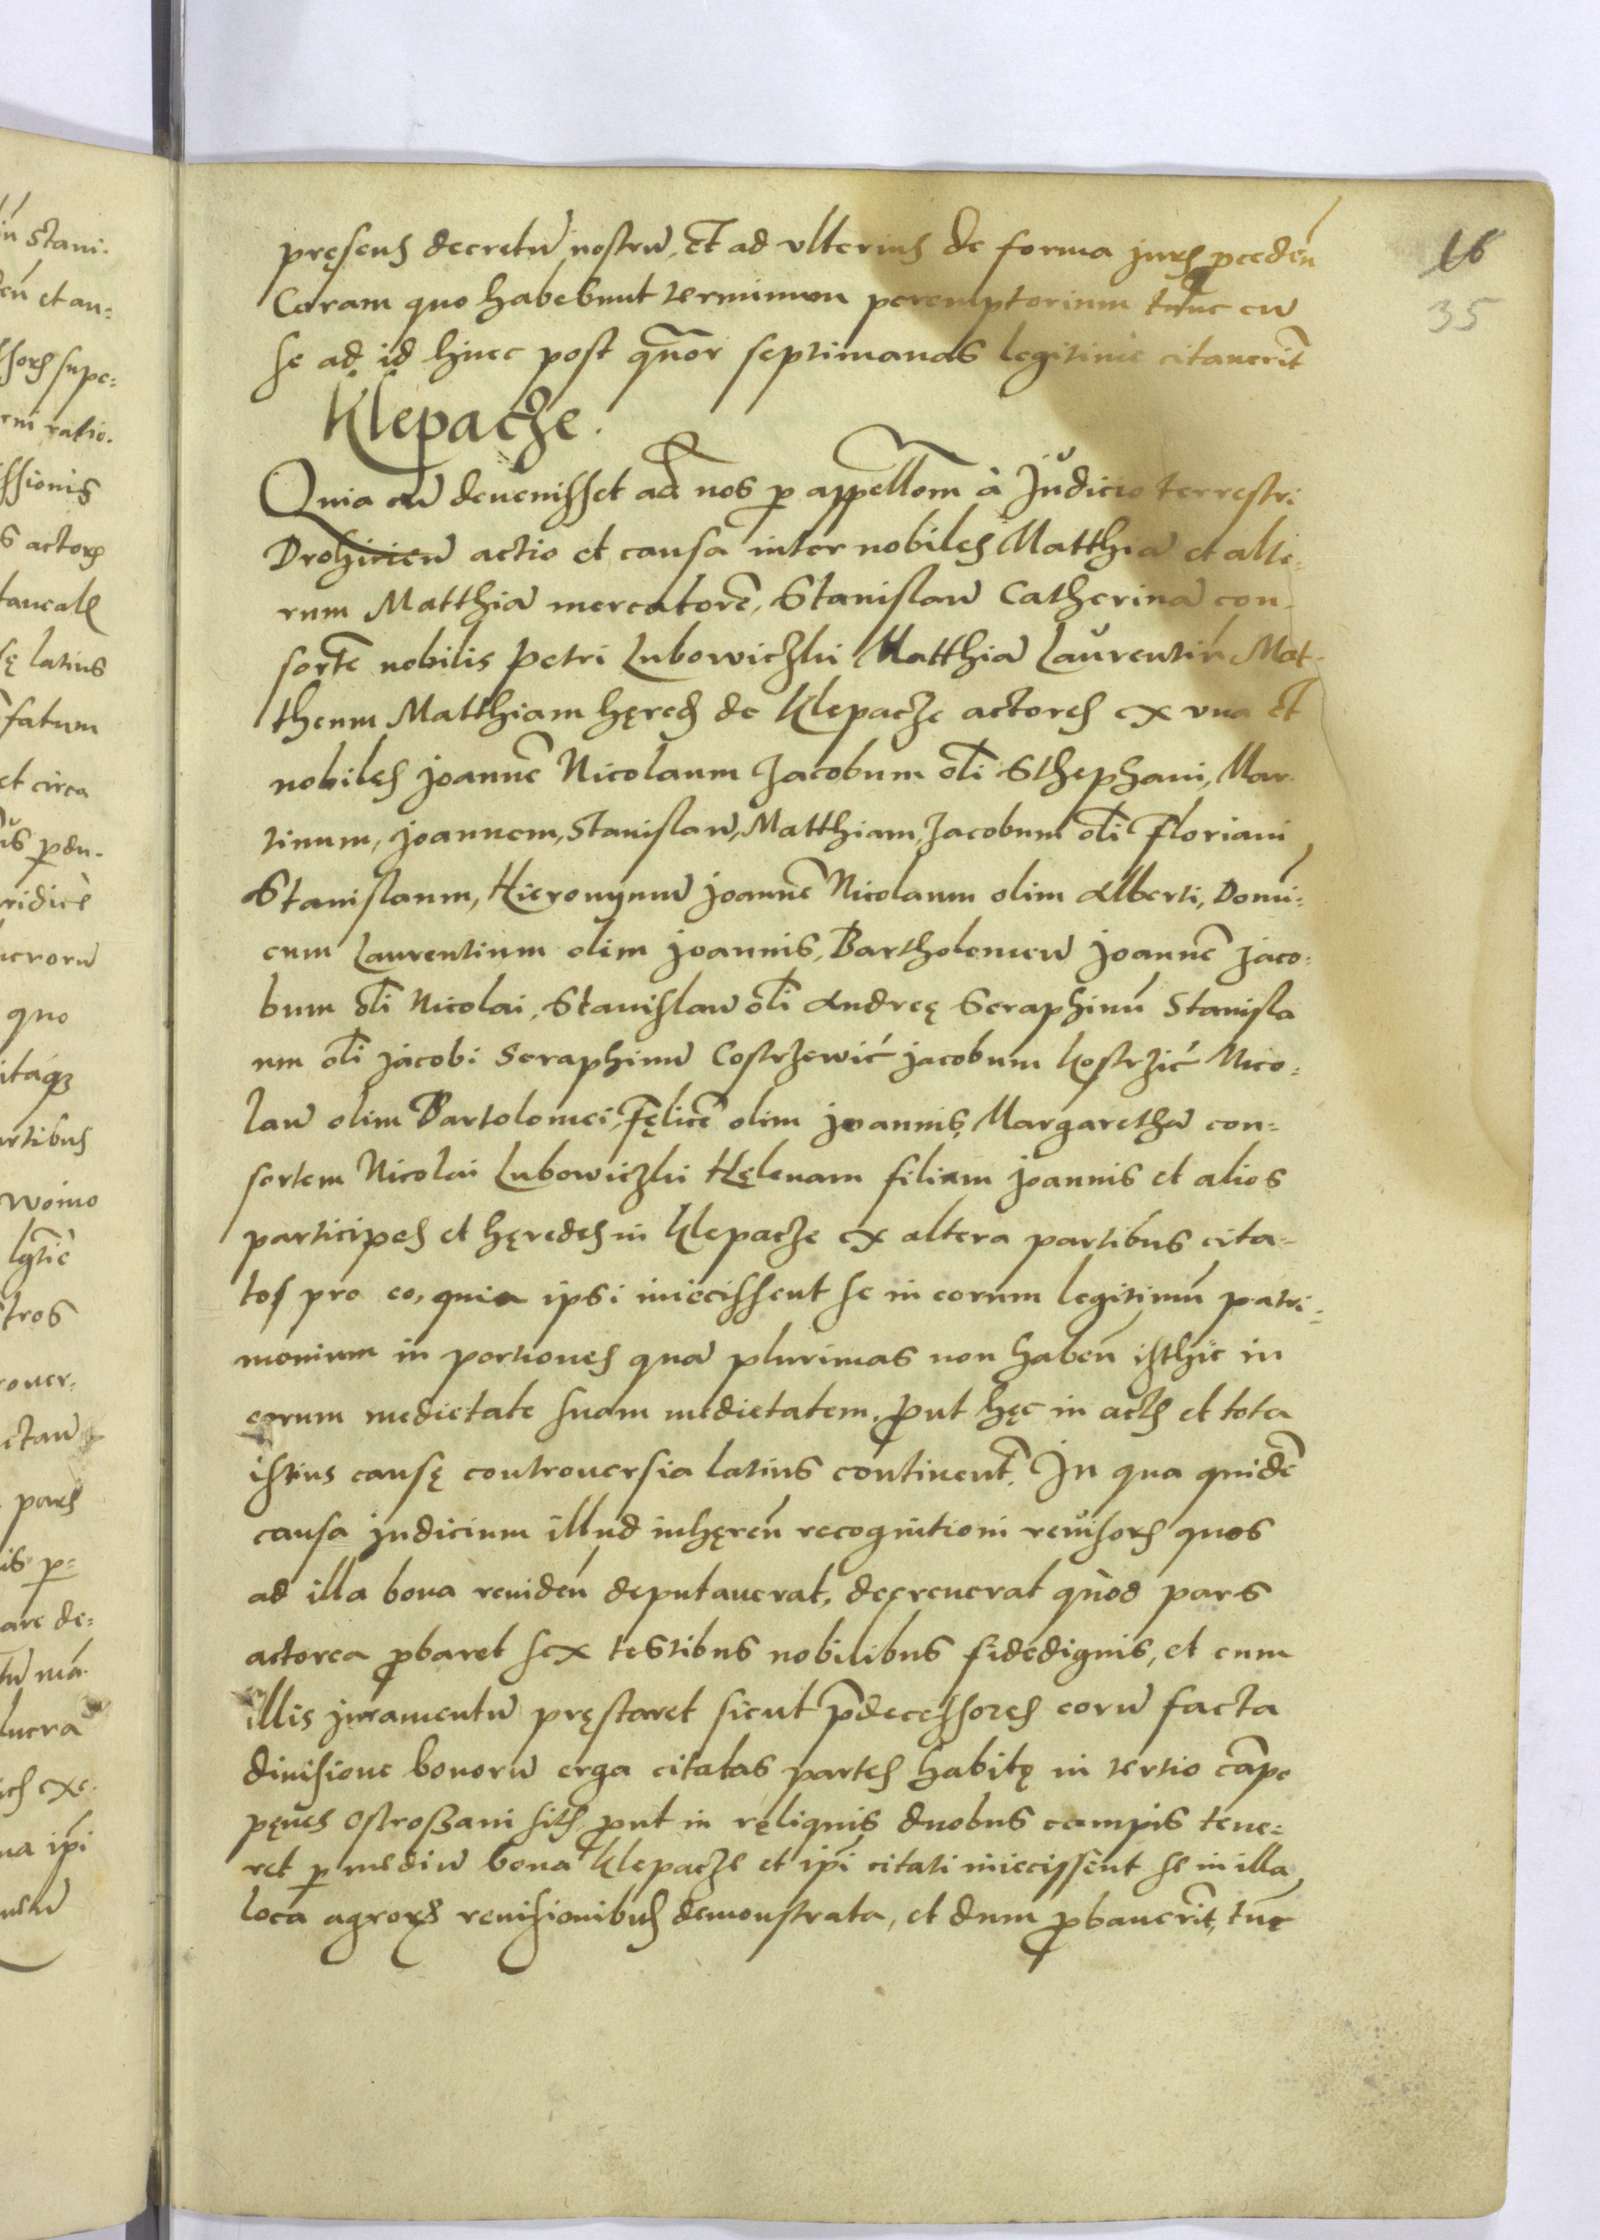 16
35
pręsens decretu̅ nostru̅, Et ad vlterius de forma juris ꝓceden̅
Coram quo habebunt terminum peremptorium tunc cu̅
se ad id hinc post quat̅uor septimanas legitime citauerit̅
Klepacze.
Quia cu̅ deuenisset ad nos ꝑ appellom̅ à Judicio terrestri
Drohicien̅ actio et causa inter nobiles Matthia̅ et alte-
rum Matthia̅ mercatore̅, Stanislau̅ Catherina̅ con-
sorte̅ nobilis Petri Lubowiczki Matthia̅ Laurentiu̅ Mat-
theum Matthiam hęred̅ de Klepacze actores ex vna et
nobiles Joanne̅ Nicolaum Jacobum oli̅ Sthephani, Mar-
tinum, Joannem, Stanislau̅, Matthiam, Jacobum oli̅ Floriani
Stanislaum, Hieronymu̅ Joanne̅ Nicolaum olim Alberti, Domi̅-
cum Laurentium olim Joannis, Bartholomeu̅ Joanne̅ Jaco-
bum oli̅ Nicolai, Stanislau̅ oli̅ Andreę Seraphinu̅ Stanisla
um oli̅ Jacobi Seraphinu̅ Costrzewić Jacobum Kostrzić Nico-
lau̅ olim Bartolomei, Fęlice̅ olim Joannis, Margaretha̅ con-
sortem Nicolai Lubowiczki Hęlenam filiam Joannis et alios
participes et hęredes in Klepacze ex altera partibus cita-
tos pro eo, quia ipsi iniecissent se in eorum legitimu̅ patri-
monium in portiones qua̅ plurimas non haben̅ isthic in
eorum medietate suam medietatem, ꝓut hęc in actis et tota
istius causę controuersia latius continent̅. In qua quide̅
causa judicium illud inhęren̅ recognitioni reuisor̅ quos
ad illa bona reuiden̅ deputauerat, decreuerat quòd pars
actorea ꝓbaret sex testibus nobilibus fidedignis, et cum
illis juramentu̅ pręstaret sicut p̅decessores eoru̅ facta
diuisione bonoru̅ erga citatas partes habitę in tertio ca̅po
pęnes Ostrożani sitis ꝓut in reliquis duobus campis tene-
ret ꝑ mediu̅ bona Klepacze et ip̅i citati iniecissent se in illa
loca agroꝝ reuisionibus demonstrata, et dum ꝓbauerit̅, tu̅c